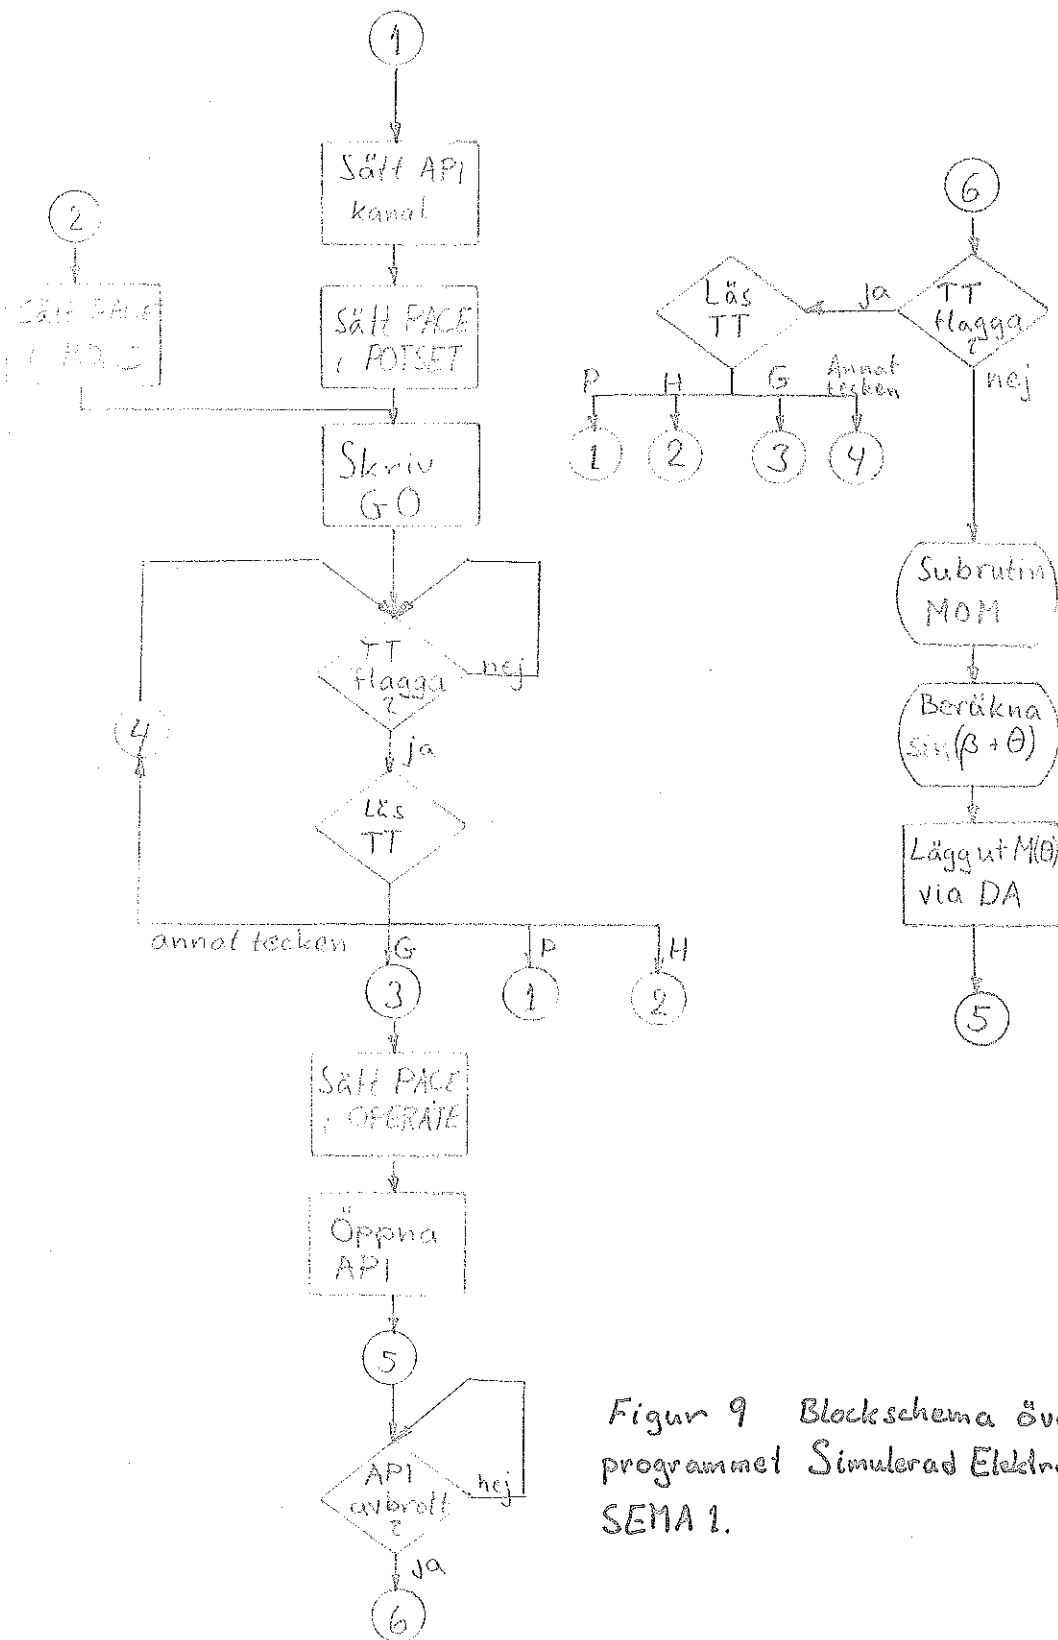 1
Sätt API
kanal
2
Sätt PACE
i
Sätt PACE
i POTSET
Skriv
GO
TT
flagga
?
nej
ja
4
Läs
TT
annat tecken
G
P
H
3
1
2
Sätt PACE
i OPERATE
Öppna
API
5
API
avbrott
?
nej
ja
6
6
TT
flagga
?
ja
nej
Läs
TT
P
H
G
Annat
tecken
1
2
3
4
Subrutin
MOM
Beräkna
sin(β + θ)
Lägg ut M(θ)
via DA
5
Figur 9 Blockschema
programmet Simulerad
SEMA 1.